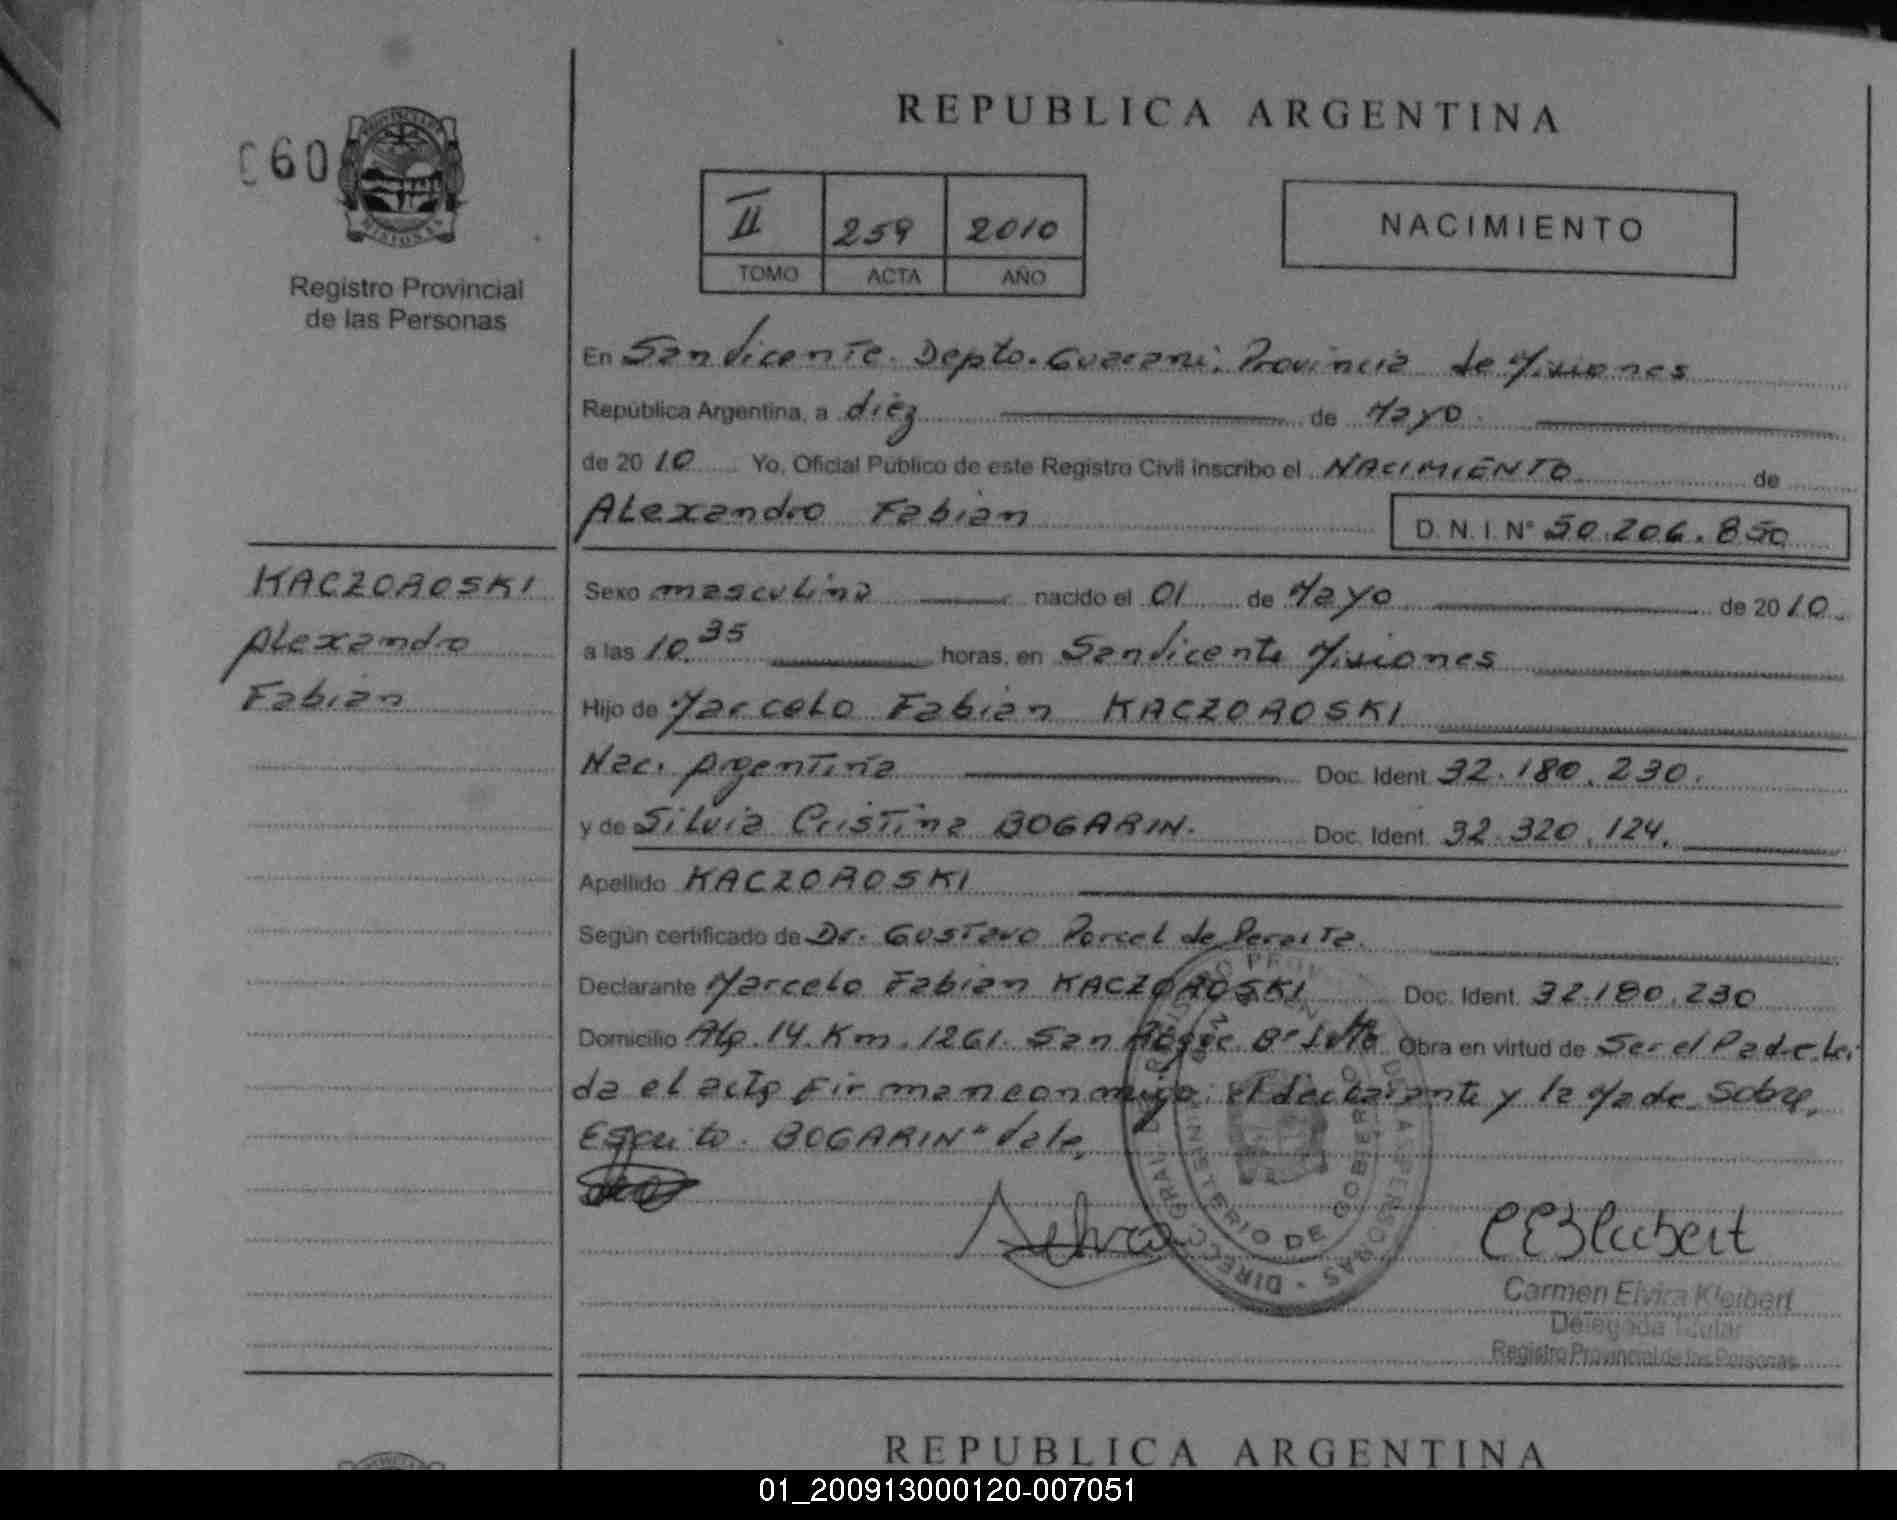 REPUBLICA ARGENTINA
060
PROVINCIA DE MISIONES
Registro Provincial
de las Personas
II 259 2010
TOMO ACTA AÑO
NACIMIENTO
En San Vicente. Depto. Guarani. Provincia de Misiones
República Argentina, a diez de Mayo
de 2010 Yo, Oficial Público de este Registro Civil inscribo el NACIMIENTO de
Alexandro Fabian D. N. I. N° 50.206.850
KACZOROSKI
Alexandro
Fabian
Sexo masculino nacido el 01 de Mayo de 2010
a las 10.35 horas, en San Vicente Misiones
Hijo de Marcelo Fabian KACZOROSKI
Nac. Argentina Doc. Ident. 32.180.230.
y de Silvia Cristina BOGARIN. Doc. Ident. 32.320.124.
Apellido KACZOROSKI
Según certificado de Dr. Gustavo Porcel de Peralta.
Declarante Marcelo Fabian KACZOROSKI Doc. Ident. 32.180.230
Domicilio Km. 1261. San Obra en virtud de Ser el Padre Lei
da el acta Firman conmigo el declarante y la Madre. Sobre
Escrito. BOGARIN" Vale.
Carmen Elvira Kleibert
Delegada Titular
Registro Provincial de las Personas
REPUBLICA ARGENTINA
01_200913000120-007051